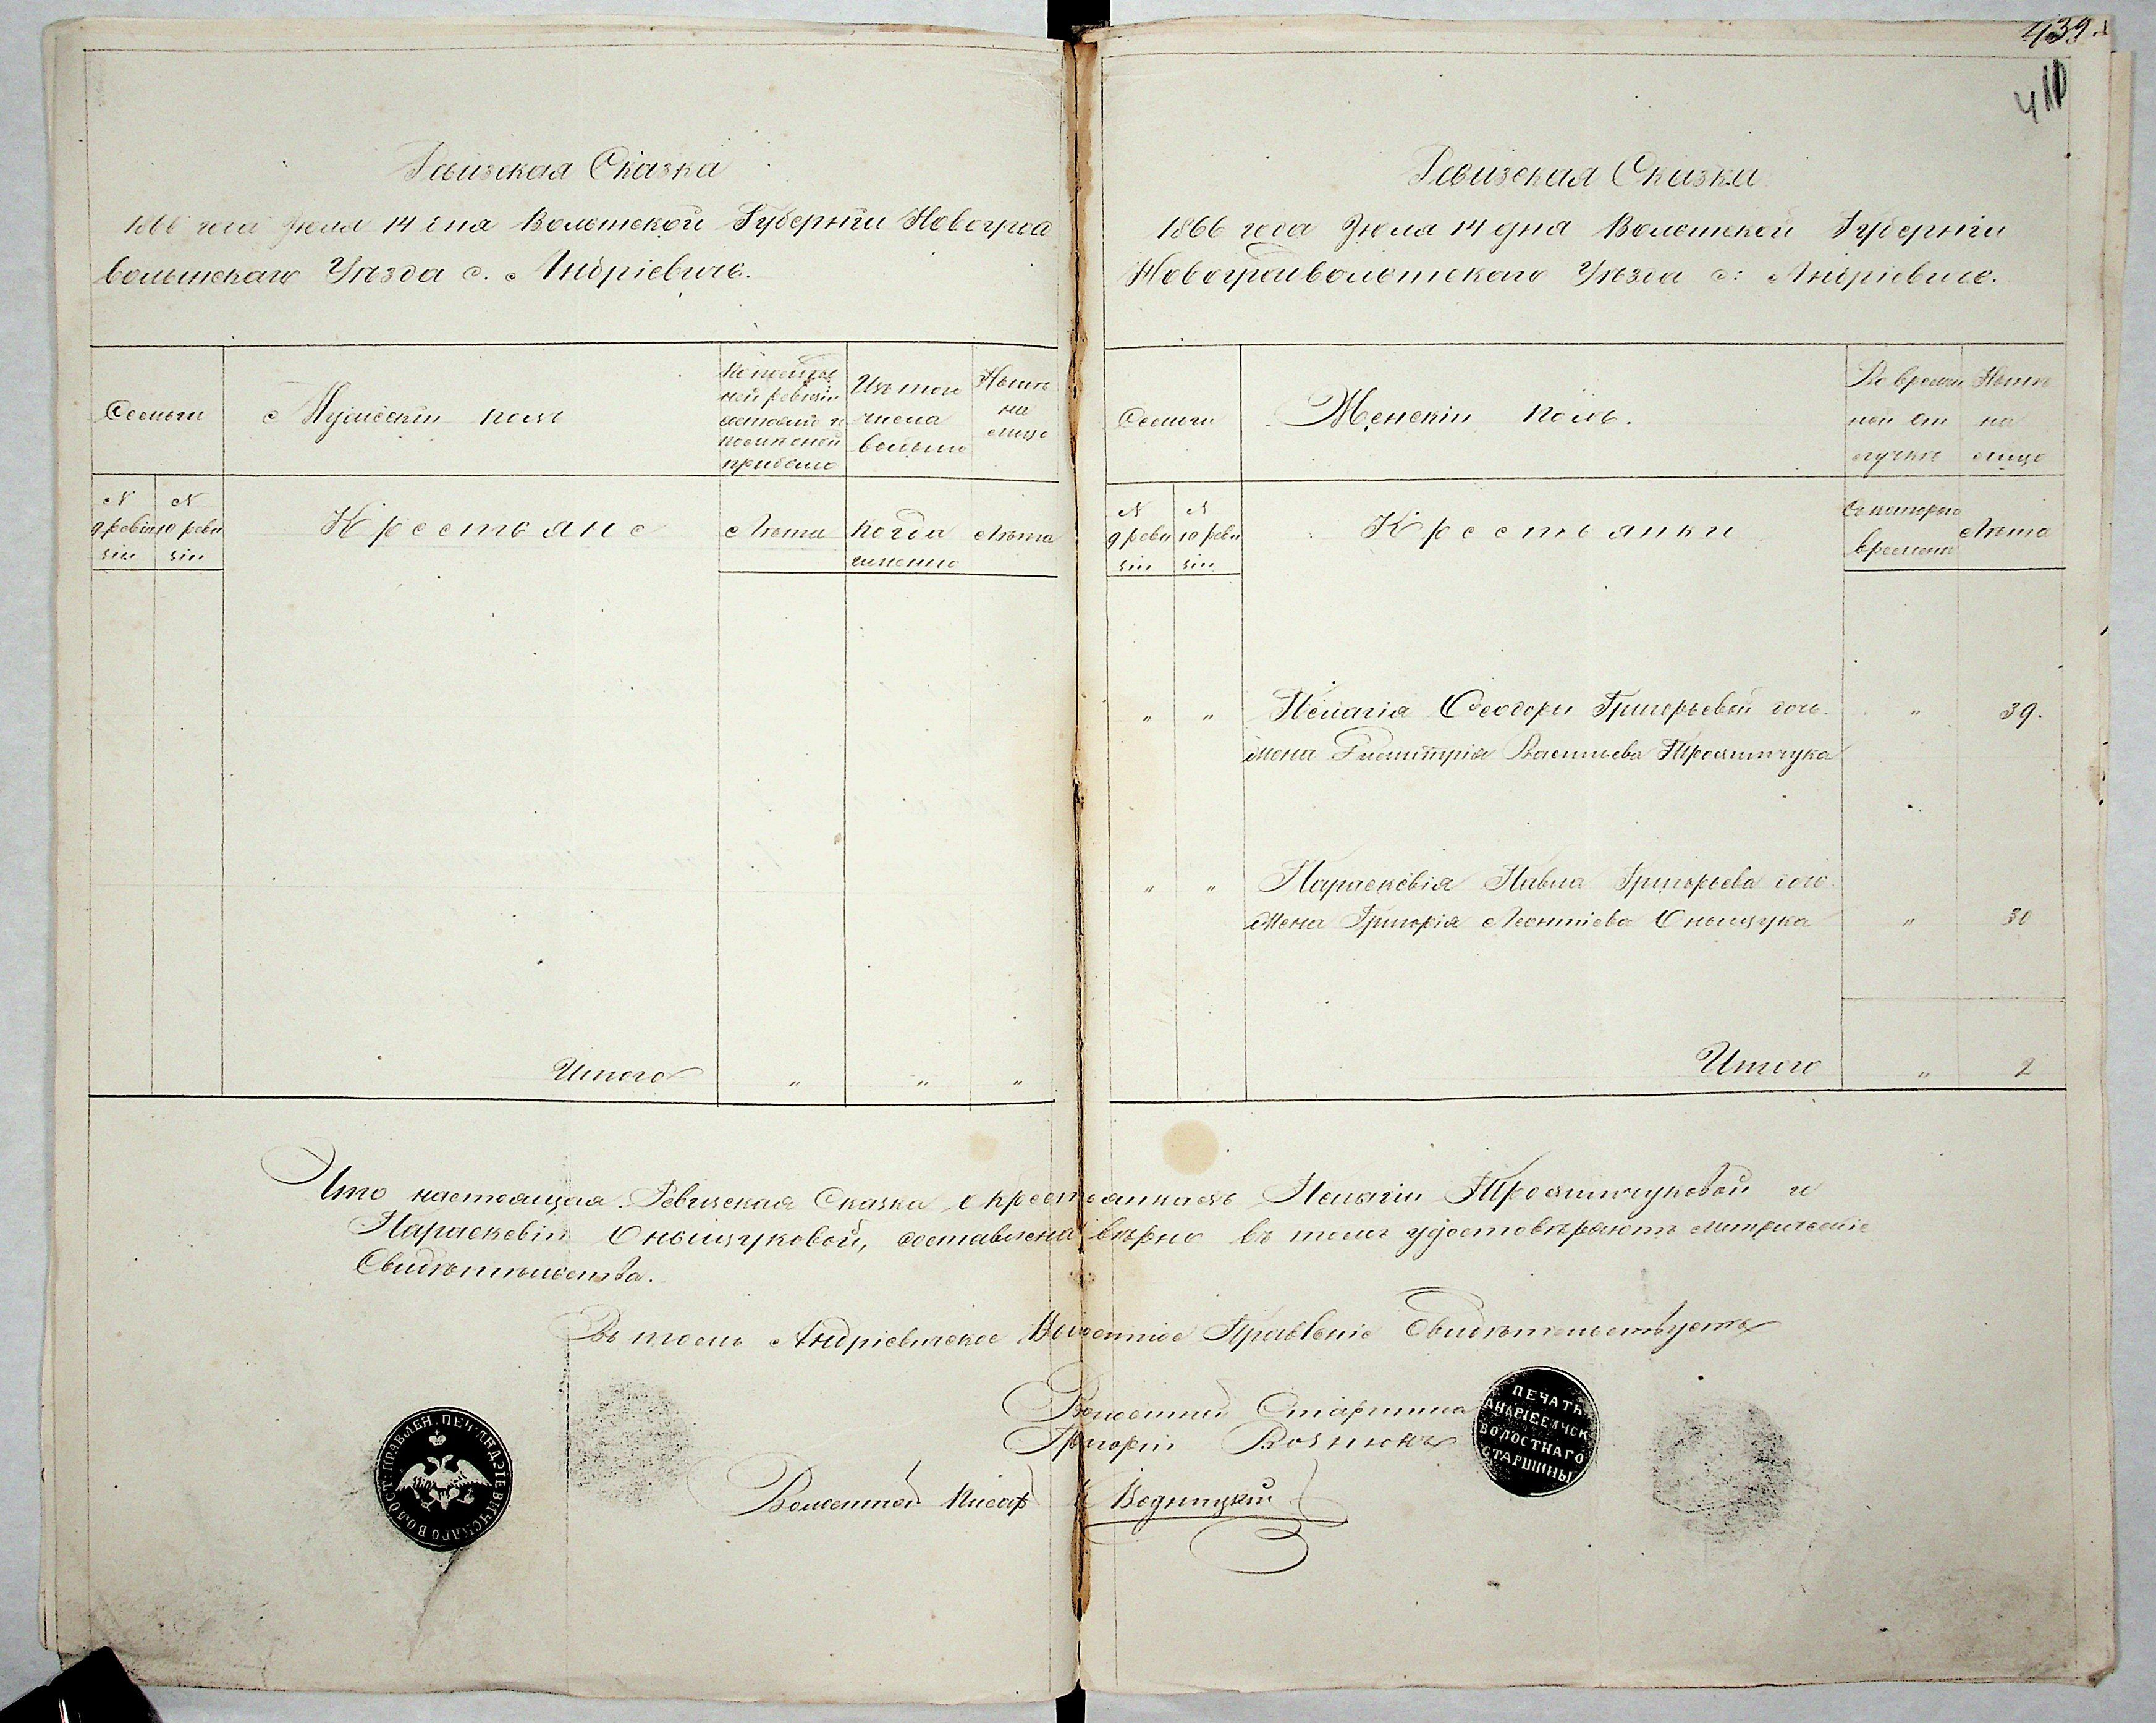 439.
410
Ревизская Сказка
1866 года Іюля 14 дня Волынской Губерніи Новоград
волынскаго Уѣзда с. Андріевичъ.
Семьи
Мужескій полъ
По послѣд
ней ревизіи
состояло и
послѣ оной
прибыло
Изъ того
числа
выбыло
Нынѣ
на
лицо
N
9 реви
зіи
N
10 реви
зіи
Крестьяне
Лѣта
когда
именно
Лѣта
Итого " " "
Ревизская Сказка
1866 года Іюля 14 дня Волынской Губерніи
Новоградволынскаго Уѣзда с: Андріевичъ.
Семьи
Женскій полъ.
Во времен
ной от
лучкѣ
Нынѣ
на
лицо
N
9 реви
зіи
N
10 реви
зіи
Крестьянки
Съ котораго
времени
Лѣта
" " Пелагія Ѳеодоры Григорьевой дочь. " 39.
жена Димитрія Васильева Трояничука
" " Параскевія Павла Григорьева дочь
жена Григорія Леонтіева Оныщука " 30
Итого " 2
Что настоящая Ревизская Сказка о крестьянкахъ Пелагіи Трояничуковой и
Параскевіи Оныщуковой, составлена вѣрно въ томъ удостовѣряютъ метрическіе
Свидѣтельства.
Въ томъ Андріевичское Волостное Правленіе Свидѣтельствуетъ
Волостный Старшина
Григорій Вознюкъ
Волостной Писарь Водницкій
ПЕЧАТЬ
АНДРІЕВИЧСК
ВОЛОСТНАГО
СТАРШИНЫ
ПЕЧ. АНДРІЕВИЧСКАГО ВОЛОСТ. ПРАВЛЕН.